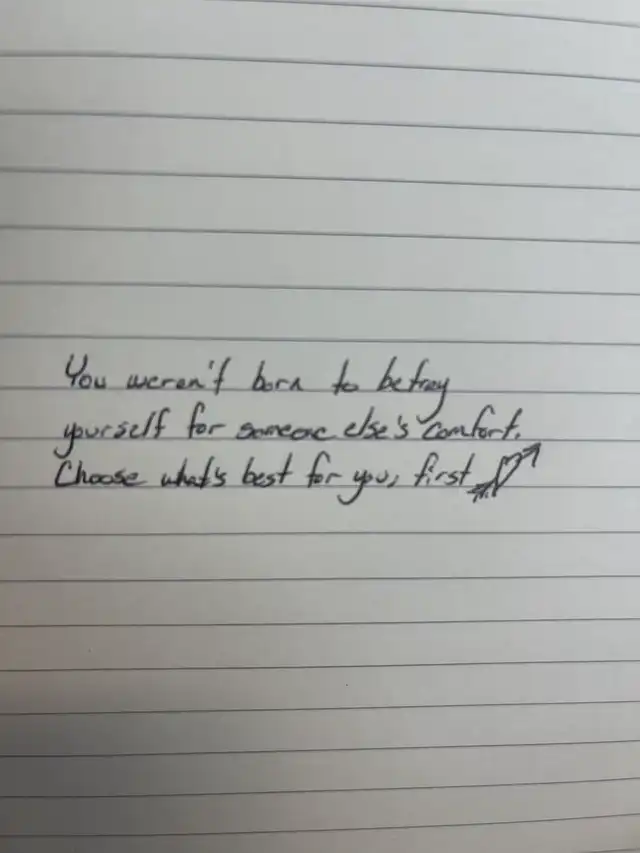 You weren't born to betray
yourself for someone else's comfort.
Choose what's best for you, first